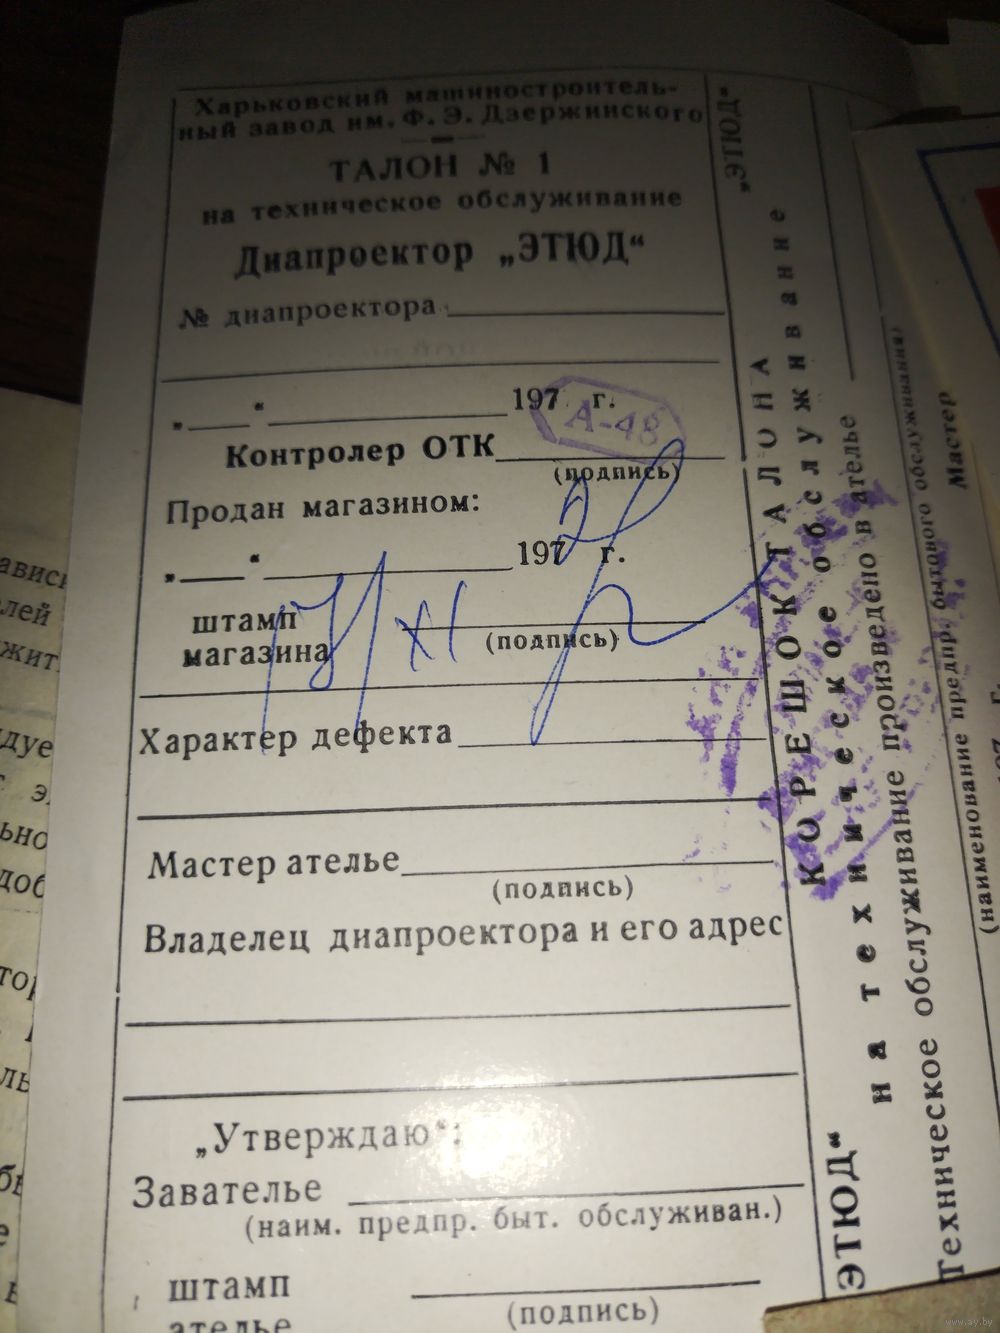 Харьковский машиностроитель-
ный завод им. Ф. Э. Дзержинского
ТАЛОН № 1
на техническое обслуживание
Диапроектор „ЭТЮД“
№ диапроектора
„ “ 197 г.
А-48
Контролер ОТК
(подпись)
Продан магазином:
„ “ 1972 г.
XI
штамп
магазина
(подпись)
Характер дефекта
Мастер ателье
(подпись)
Владелец диапроектора и его адрес
„Утверждаю“:
Завателье
(наим. предпр. быт. обслуживан.)
штамп
ателье
(подпись)
КОРЕШОК ТАЛОНА
на техническое обслуживание
„ЭТЮД“
ЭТЮД“
Техническое обслуживание произведено в ателье
(наименование предпр. бытового обслуживания)
Мастер
197 г.
www.ay.by